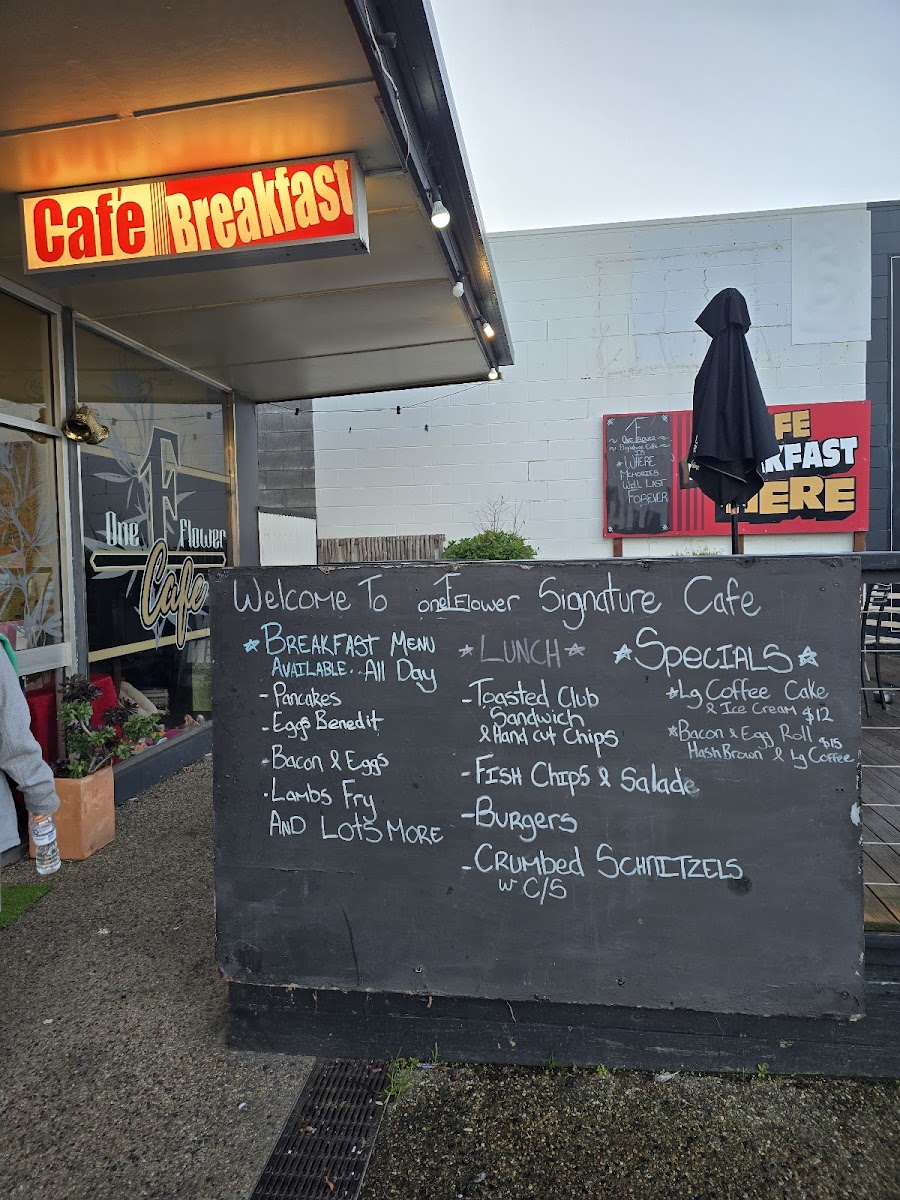 Café Breakfast
F
One Flower
Cafe
F
~ One Flower ~
~ Signature Cafe ~
IS
* WHERE
MEMORIES
WILL LAST
FOREVER
BREAKFAST
HERE
WELCOME TO oneFFlower Signature Cafe
* BREAKFAST MENU
AVAILABLE.. All Day
- Pancakes
- Eggs Benedit
- Bacon & Eggs
- Lambs Fry
AND LOTS MORE
* LUNCH *
- Toasted Club
Sandwich
& Hand cut Chips
- FISH CHIPS & Salade
- Burgers
- CRUMBED SCHNITZELS
w C/S
* SPECIALS *
* Lg Coffee Cake
& Ice Cream $12
* Bacon & Egg Roll $15
Hash Brown & Lg Coffee